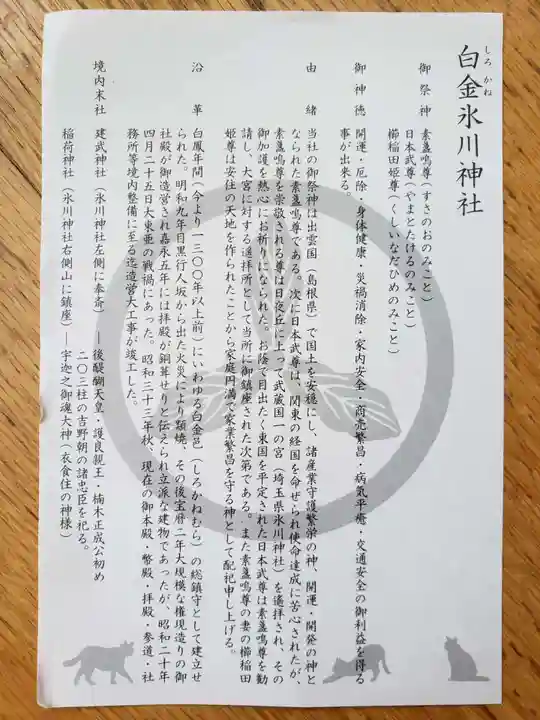 しろかね
白金氷川神社
御祭神　素盞嗚尊（すさのおのみこと）
日本武尊（やまとたけるのみこと）
櫛稲田姫尊（くしいなだひめのみこと）
御神徳　開運・厄除・身体健康・災禍消除・家内安全・商売繁昌・病気平癒・交通安全の御利益を得る
事が出来る。
由緒　当社の御祭神は出雲国（島根県）で国土を安穏にし、諸産業守護繁栄の神、開運・開発の神と
なられた素盞嗚尊である。次に日本武尊は、関東の経国を命ぜられ使命達成に苦心されたが、
素盞嗚尊を崇敬される尊は日夜丘に上って武蔵国一の宮（埼玉県氷川神社）を遙拝され、その
御加護を熱心にお祈りになられた。お陰で目出たく東国を平定された日本武尊は素盞嗚尊を勧
請し、大宮に対する遙拝所として当所に御鎮座された次第である。また素盞嗚尊の妻の櫛稲田
姫尊は安住の天地を作られたことから家庭円満で家業繁昌を守る神として配祀申し上げる。
沿革　白鳳年間（今より一三〇〇年以上前）にいわゆる白金邑（しろかねむら）の総鎮守として建立せ
られた。明和九年目黒行人坂から出た火災により類焼、その後宝暦二年大規模な権現造りの御
社殿が御造営され嘉永五年には拝殿が銅葺せりと伝えられ立派な建物であったが、昭和二十年
四月二十五日大東亜の戦禍にあった。昭和三十三年秋、現在の御本殿・幣殿・拝殿・参道・社
務所等境内整備に至る迄造営大工事が竣工した。
境内末社　建武神社（氷川神社左側に奉斎）―後醍醐天皇・護良親王・楠木正成公初め
二〇三柱の吉野朝の諸忠臣を祀る。
稲荷神社（氷川神社右側山に鎮座）―宇迦之御魂大神（衣食住の神様）